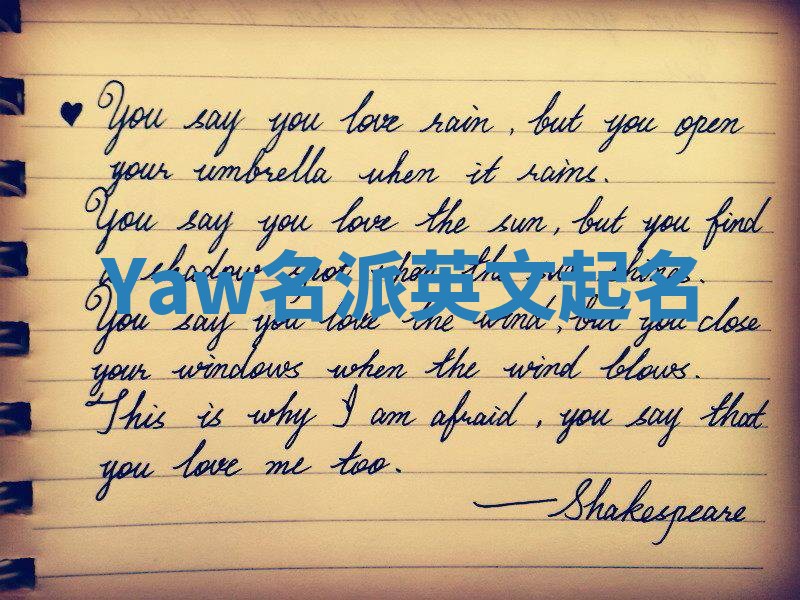 ♥ You say you love rain, but you open
your umbrella when it rains.
You say you love the sun, but you find
a shadow spot when the sun shines.
Yaw名派英文起名
You say you love the wind, but you close
your windows when the wind blows.
This is why I am afraid, you say that
you love me too.
—Shakespeare